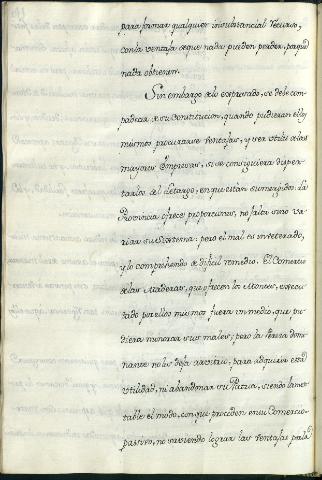 para formar qualquier insubstancial recurso,
con la ventaja de que nada pueden perder, porque
nada obtienen.
Sin embargo de lo expresado, se debe com-
padecer su Constitucion, quando pudieran ellos
mismos procurarse ventajas, y ser utiles a las
mayores Empresas, si se consiguiera desper-
tarlos del Letargo, en que estan sumergidos. La
Provincia ofrece proporciones, no falta sino va-
riar su Sistema: pero el mal es inveterado,
y lo comprehendo de dificil remedio. El Comercio
de las Maderas, que ofrecen los Montes, execu-
tado por ellos mismos fuera un medio, que pu-
diera minorar sus males; pero la Pereza domi-
nante no les deja arvitrio, para adquirir esta
utilidad, ni abandonar su Patria, siendo lamen-
table el modo, con que proceden en su Comercio
pasivo, no sabiendo lograr las ventajas